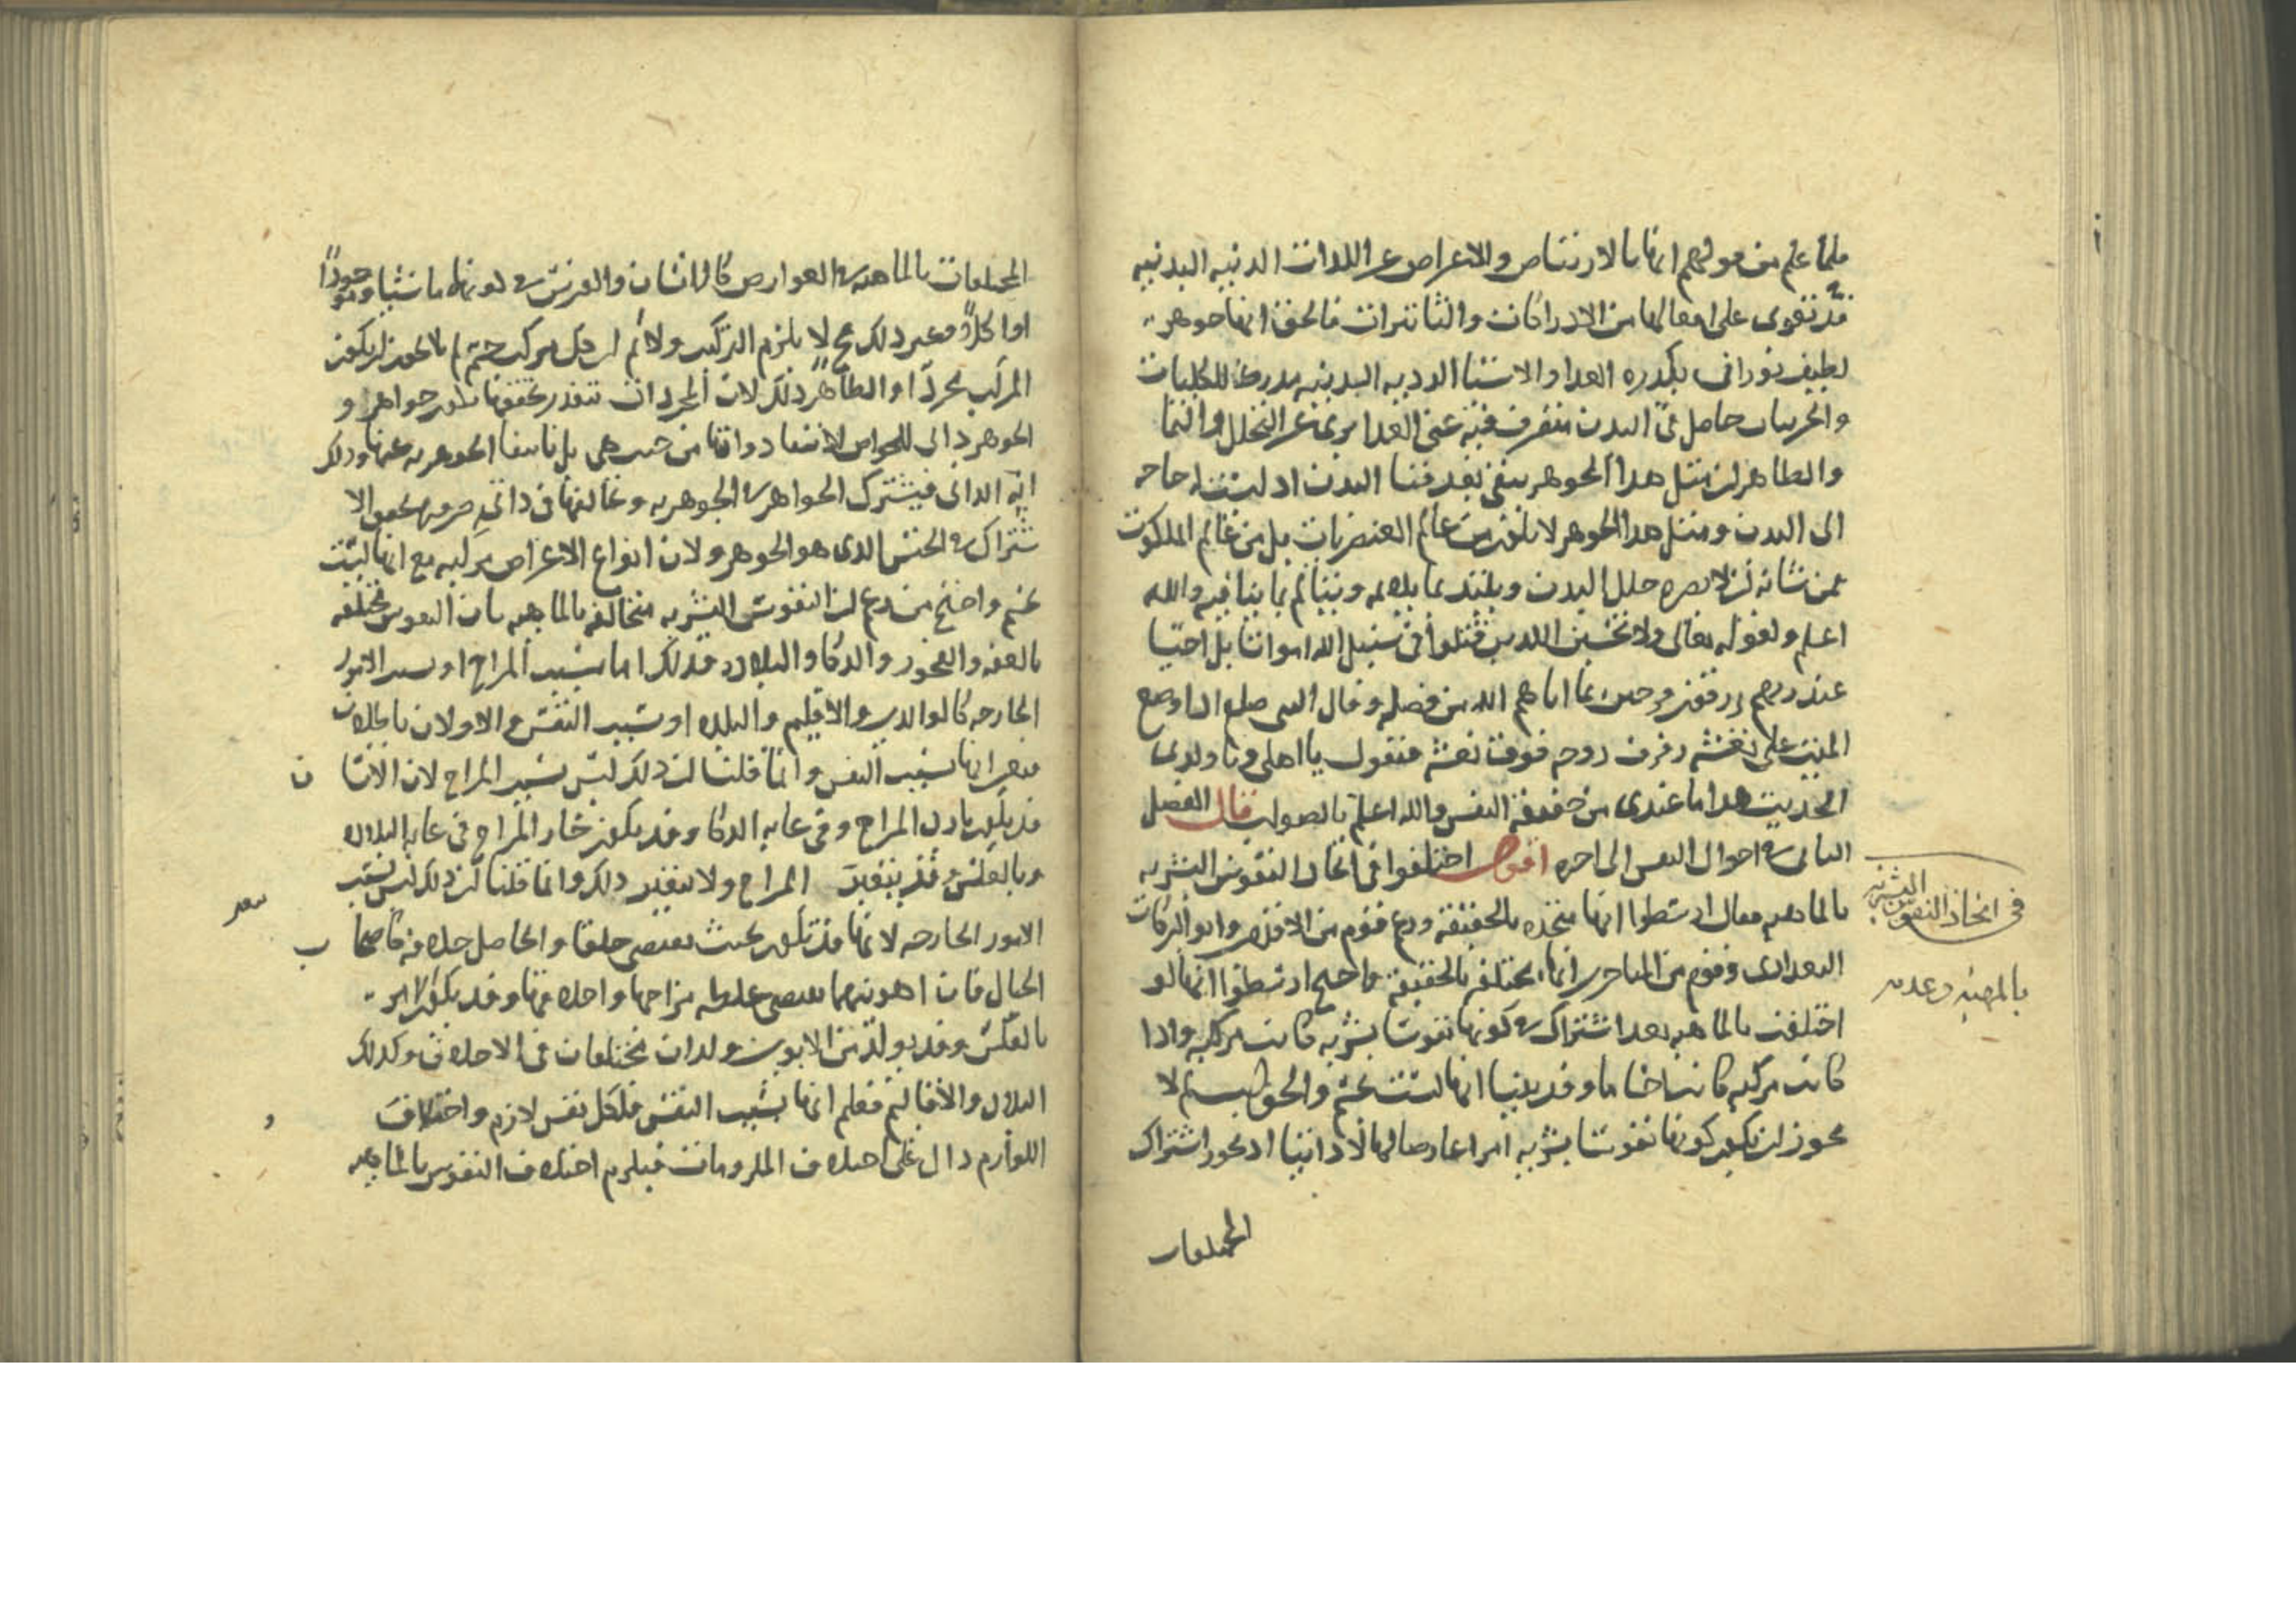 فلما علم من قولهم انها بالارتياض والاعراض عن اللذات الدنيه البدنيه
قد تقوى على افعالها من الادراكات والتاثيرات فالحق انها جوهر
لطيف نورانى يكدره الغذا والاشيا الرديه البدنيه مدرك للكليات
والجزئيات حاصل فى البدن متصرف فيه غنى عن الغذا برى عن التحلل والنما
والظاهر ان مثل هذا الجوهر يبقى بعد فنا البدن اذ ليست له حاجه
الى البدن ومثل هذا الجوهر لا يكون من عالم العنصريات بل من عالم الملكوت
فمن شانه ان لا يضره خلل البدن ويلتذ بما يلايمه ويتالم بما ينافيه والله
اعلم ولقوله تعالى ولا تحسبن الذين قتلوا فى سبيل الله امواتا بل احيا
عند ربهم يرزقون فرحين بما اتاهم الله من فضله وقال النبى صلعم اذا وضع
الميت على نعشه رفرف روحه فوق نعشه فيقول يا اهلى ويا ولدى
الحديث هذا ما عندى من حقيقة النفس والله اعلم بالصواب قال الفصل
الثانى فى احوال النفس الى اخره اقول اختلفوا فى اتحاد النفوس البشريه
بالماهيه فقال ارسطوا انها متحده بالحقيقه وزعم قوم من الاقدمين وابو البركات
البغدادى وقوم من المتاخرين انها مختلفه بالحقيقه واحتج ارسطوا انها لو
اختلفت بالماهيه بعد اشتراك فى كونها نفوسا بشريه كانت مركبه واذا
كانت مركبه كانت اجساما وقد بينا انها ليست بجسم والحق لم لا
يجوز ان يكون كونها نفوسا بشريه امرا عارضا لها لا ذاتيا اذ يجوز اشتراك
المختلفات
فى اتحاد النفوس البشريه
بالمهيه وعدمه
المختلفات بالماهيه فى العوارض كالانسان والفرس فى كونهما ماشيا وموجودا
او اكلا وغير ذلك فح لا يلزم التركيب ولا نم ان كل مركب جسم لم لا يجوز ان يكون
المركب مجردا والظاهر ذلك لان المجردات بتقدير تحققها تكون جواهر و
الجوهر ذاتى للجواهر لانتفا ذواتها من حيث هى هى بانتفا الجوهريه عنها وذلك
ايه الذاتى فيشترك الجواهر فى الجوهريه وتخالفها فى ذاتى ضروره تحقق الا
شتراك فى الجنس الذى هو الجوهر ولان انواع الاعراض مركبه مع انها ليست
بجسم واحتج من زعم ان النفوس البشريه متخالفه بالماهيه بان النفوس مختلفه
بالعفه والفجور والذكا والبلاده فذلك اما بسبب المزاج او بسبب الامور
الخارجه كالوالدين والاقليم والبلده او بسبب النفس والاولان باطلان
فتعين انها بسبب النفس وانما قلنا ان ذلك ليس بسبب المزاج لان الانسان
قد يكون بارد المزاج وفى غايه الذكا وقد يكون حار المزاج فى غايه البلاده
وبالعكس وقد يتغير المزاج ولا يتغير ذلك وانما قلنا ان ذلك ليس بسبب
الامور الخارجه لانها قد تكون بحيث يقتضى خلقا والحاصل خلافه
الحال فان ابويهما واحده منها وقد يكون الامر
بالعكس وقد يولد من الابوين ولدان مختلفان فى الاخلاق وكذلك
البلاد والاقاليم فعلم انها بسبب النفس فلكل نفس لازم واختلاف
اللوازم دال على اختلاف الملزومات فيلزم اختلاف النفوس بالماهيه